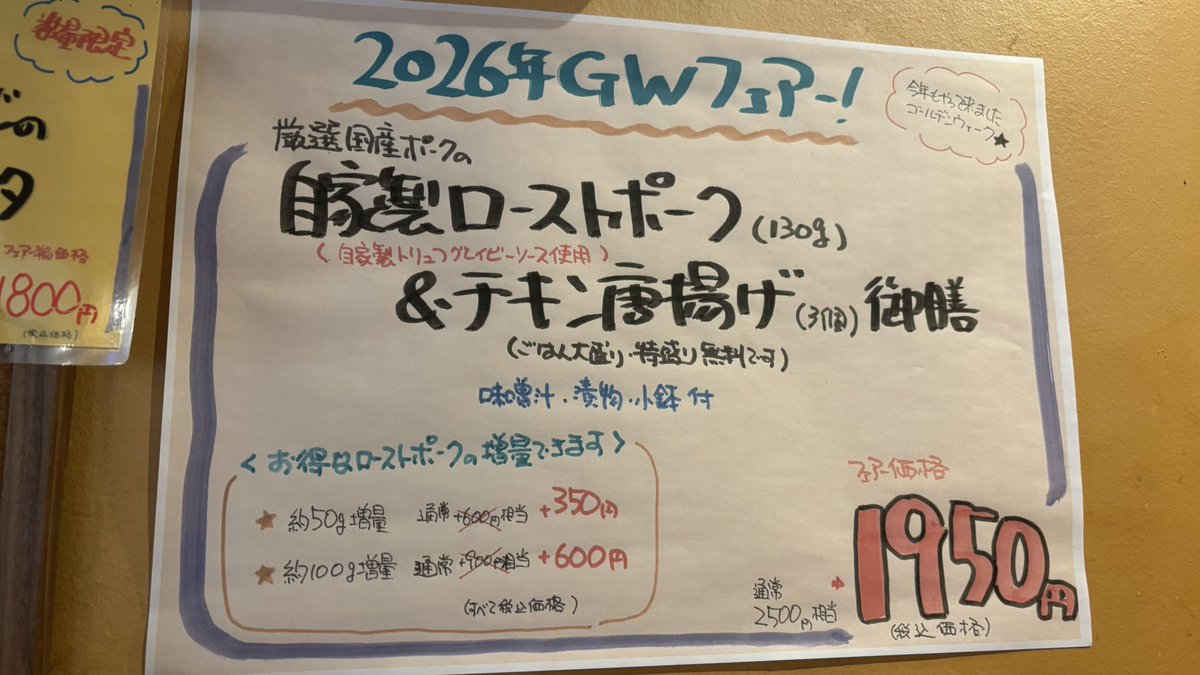 数量限定
の
タ
フェアー価格
1800円
(税込価格)
2026年GWフェアー!
今年もやって来ました
ゴールデンウィーク★
厳選国産ポークの
自家製ローストポーク(130g)
(自家製トリュフグレイビーソース使用)
&チキン唐揚げ(3個)御膳
(ごはん大盛り・特盛り無料です)
味噌汁・漬物・小鉢付
<お得なローストポークの増量できます>
★ 約50g増量 通常+600円相当 +350円
★ 約100g増量 通常+900円相当 +600円
(すべて税込価格)
フェアー価格
通常
2500円相当
→1950円
(税込価格)